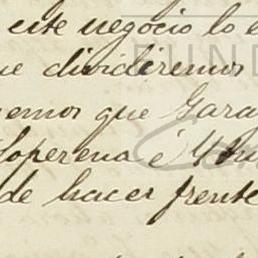 este negocio lo e
ue dividiremos
emos que Gara
Soperena é
de hacer frente